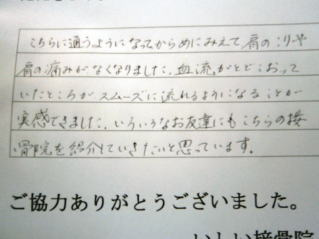 こちらに通うようになってからめにみえて肩のこりや
肩の痛みがなくなりました。血流がとどこおって
いたところがスムーズに流れるようになることが
実感できました。いろいろなお友達にもこちらの接
骨院を紹介していきたいと思っています。
ご協力ありがとうございました。
接骨院